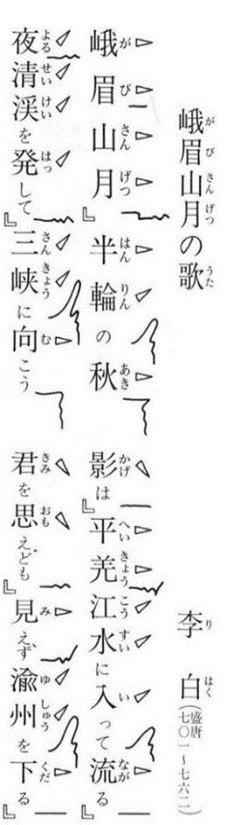 峨眉山月の歌
李白(盛唐 七〇一〜七六二)
峨眉山月』半輪の秋 影は』平羌江水に入って流る』
夜清渓を発して』三峡に向こう 君を思えども』見えず渝州を下る』